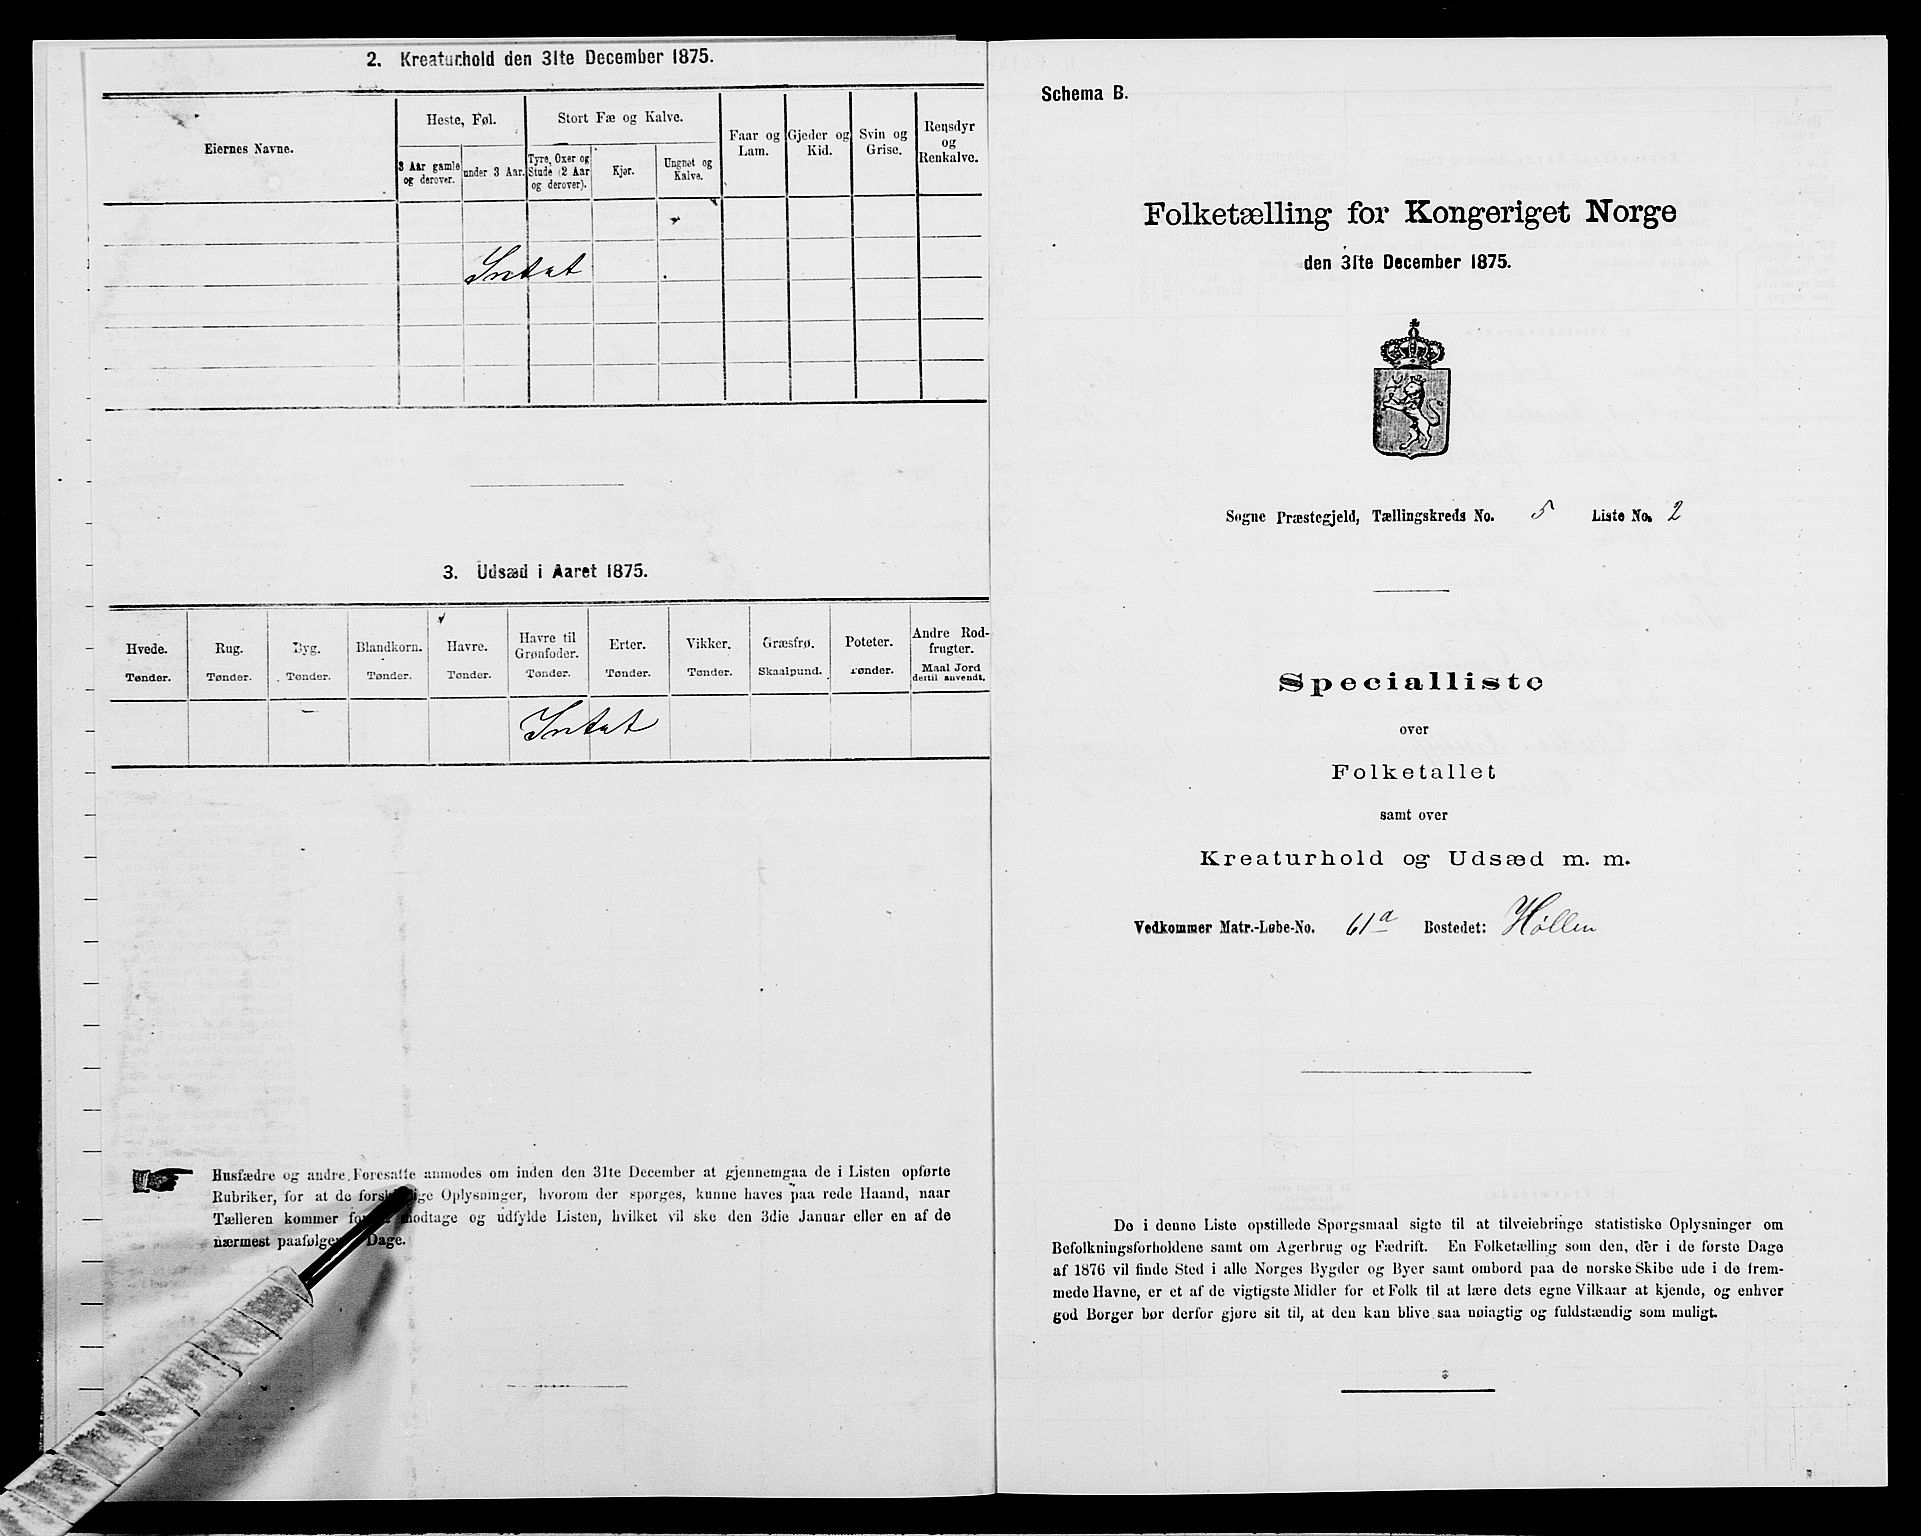 2. Kreaturhold den 31te December 1875.
Eiernes Navne.
Heste, Føl.
Stort Fæ og Kalve.
3 Aar gamle og derover.
under 3 Aar.
Tyre, Oxer og Stude (2 Aar og derover).
Kjør.
Ungnet og Kalve.
Faar og Lam.
Gjeder og Kid.
Svin og Grise.
Rensdyr og Renkalve.
Intet
3. Udsæd i Aaret 1875.
Hvede. Rug. Byg. Blandkorn. Havre. Havre til Grønfoder. Erter. Vikker. Græsfrø. Poteter. Andre Rodfrugter.
Tønder. Tønder. Tønder. Tønder. Tønder. Tønder. Tønder. Tønder. Skaalpund. Tønder. Maal Jord dertil anvendt.
Intet
Husfædre og andre Foresatte anmodes om inden den 31te December at gjennemgaa de i Listen opførte
Rubriker, for at de Oplysninger, hvorom der spørges, kunne haves paa rede Haand, naar
Tælleren kommer modtage og udfylde Listen, hvilket vil ske den 3die Januar eller en af de
nærmest Dage.
Schema B.
Folketælling for Kongeriget Norge
den 31te December 1875.
Sogne Præstegjeld, Tællingskreds No. 5 Liste No. 2
Specialliste
over
Folketallet
samt over
Kreaturhold og Udsæd m. m.
Vedkommer Matr.-Løbe-No. 61a Bostedet: Høllen
De i denne Liste opstillede Spørgsmaal sigte til at tilveiebringe statistiske Oplysninger om
Befolkningsforholdene samt om Agerbrug og Fædrift. En Folketælling som den, der i de første Dage
af 1876 vil finde Sted i alle Norges Bygder og Byer samt ombord paa de norske Skibe ude i de frem-
mede Havne, er et af de vigtigste Midler for et Folk til at lære dets egne Vilkaar at kjende, og enhver
god Borger bør derfor gjøre sit til, at den kan blive saa nøiagtig og fuldstændig som muligt.